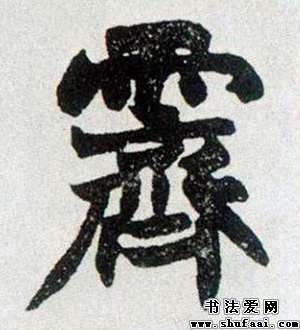 霽
书法爱网
www.shufaai.com